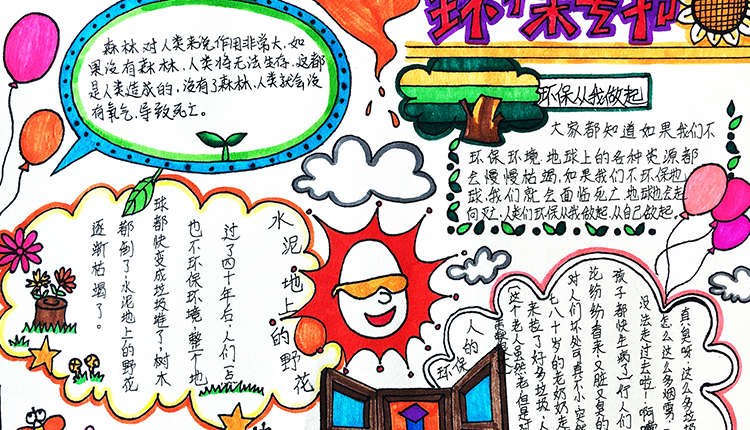 环保专刊
森林对人类来说作用非常大,如
果没有森林,人类将无法生存,这都
是人类造成的,没有了森林,人类就会没
有氧气,导致死亡。
环保从我做起
大家都知道如果我们不
环保环境,地球上的各种资源都
会慢慢枯竭,如果我们不环保地
球,我们就会面临死亡,地球也会走
向灭亡,人类们环保从我做起,从自己做起。
水泥地上的野花
过了四十年后,人们
也不环保环境,整个地
球都快变成垃圾堆了,树木
都倒了,水泥地上的野花
逐渐枯竭了。
人的
环保的
真臭呀,这么多垃圾
怎么这么多烟雾
没法走过去啦!啊
孩子都快生病了,行人们
论纷纷,香来又脏又臭的
对人们坏处可真不小,突然
七八十岁的老奶奶走
来捡了好多垃圾,人
这个老人虽然老但是